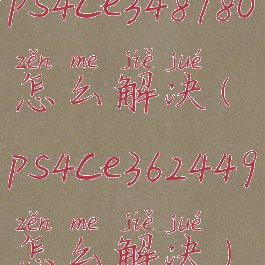 ps4ce348780
zěn me jiě jué
怎么解决(
ps4ce362449
zěn me jiě jué
怎么解决)